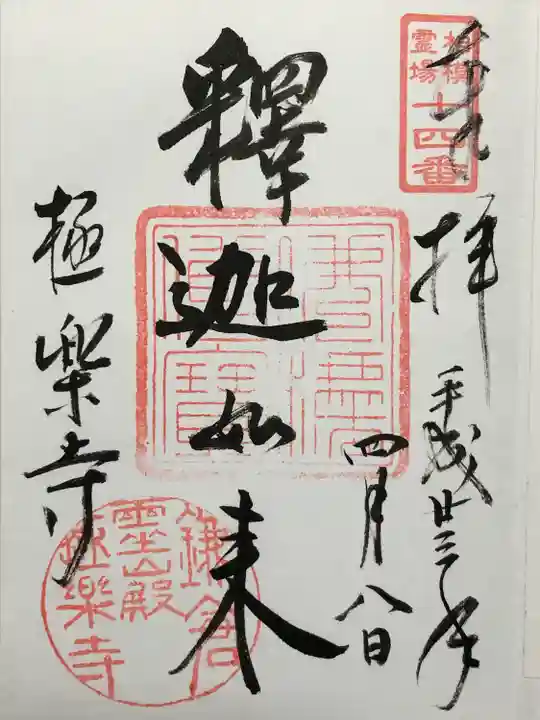 相模
霊場
十四番
奉拝
平成廿三年
四月八日
釋迦如来
佛法僧寶
極楽寺
鎌倉
霊山殿
極樂寺